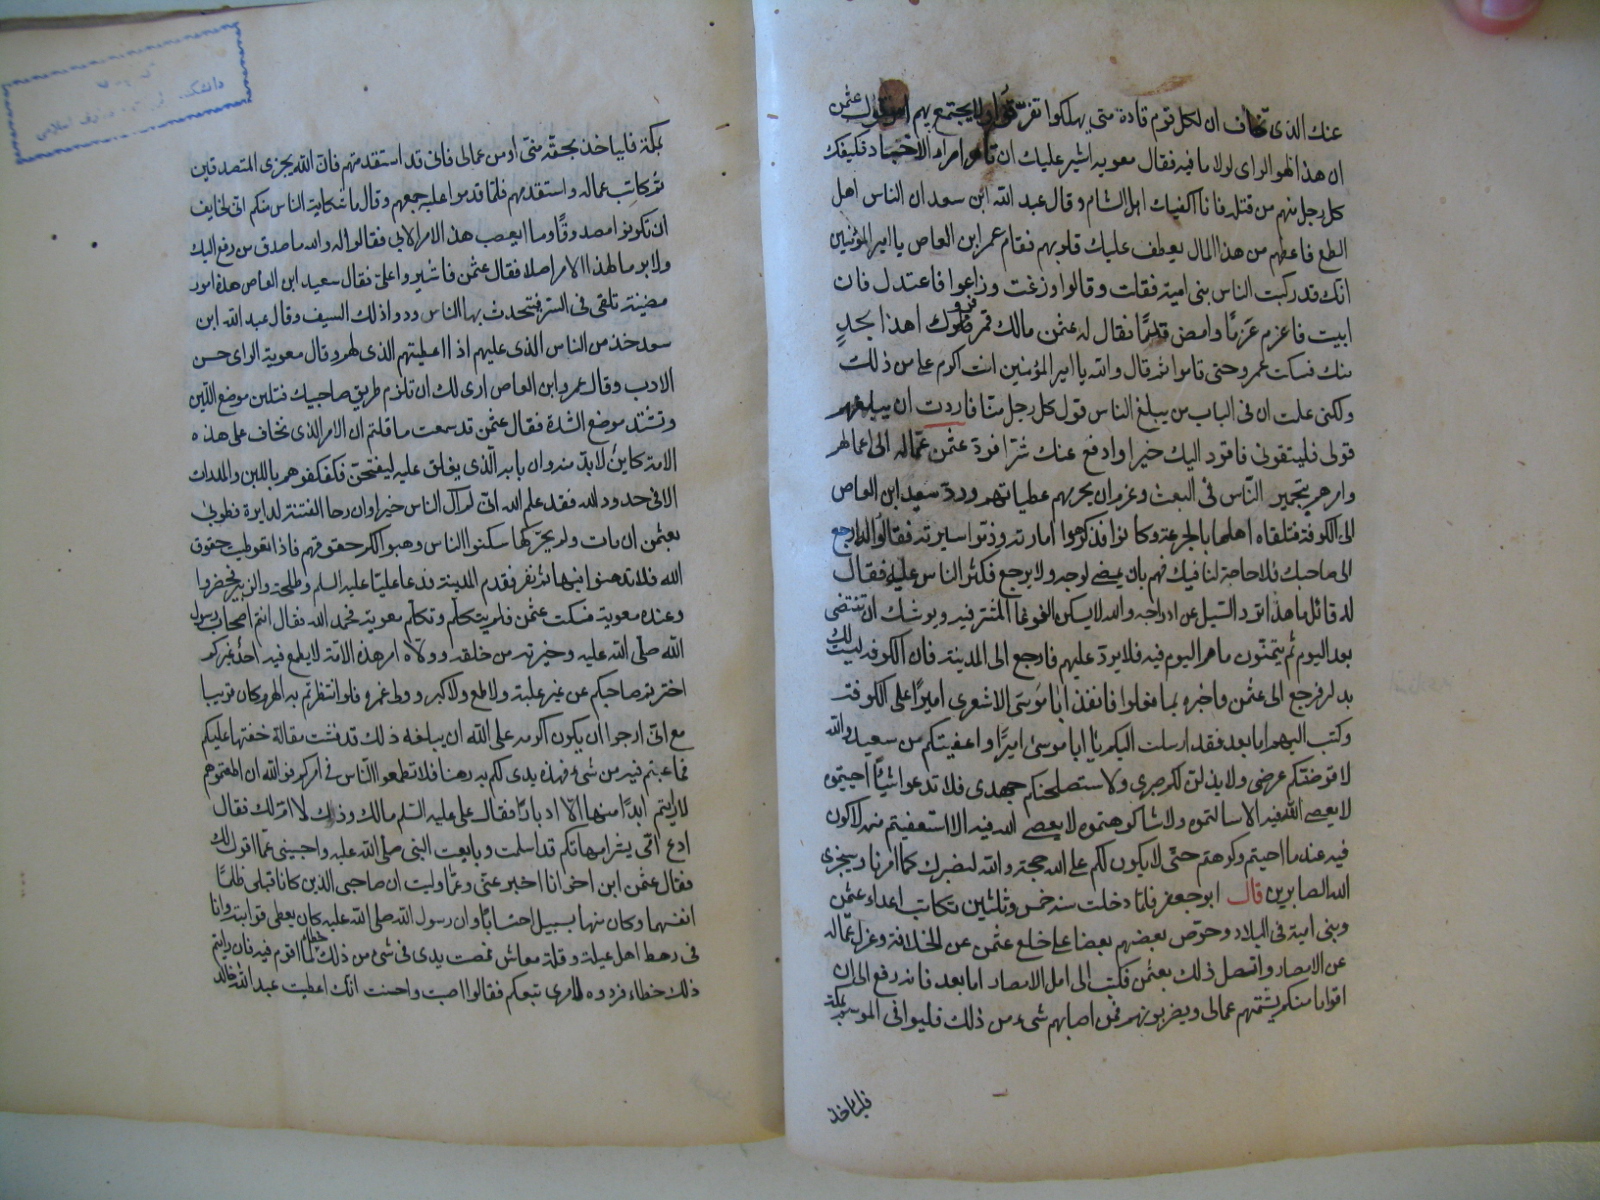 عنك الذى تخاف ان لكل قوم قادة متى يهلكوا تفرقوا ولا يجتمع بهم امر فقال عثمن
ان هذا لهو الراى لولا ما فيه فقال معويه اشير عليك ان تامر امراء الاجناد فيكفيك
كل رجل منهم من قبله فانا اكفيك اهل الشام وقال عبد الله ابن سعد ان الناس اهل
الطمع فاعطهم من هذا المال يعطف عليك قلوبهم فقام عمر ابن العاص يا امير المؤمنين
انك قد ركبت الناس بنى امية فقلت وقالوا وزغت وزاغوا فاعتدل فان
ابيت فاعزم عزما وامض قدما فقال له عثمن مالك قمل فروك اهذا بجد
منك فسكت عمرو حتى قاموا ثم قال والله يا امير المؤمنين انت اكرم على من ذلك
ولكنى علمت ان فى الباب من يبلغ الناس قول كل رجل منا فاردت ان يبلغهم
قولى فليثقونى فاقود اليك خيرا وادفع عنك شرا فرد عثمن عماله الى اعمالهم
وامرهم بتجمير الناس فى البعث وعزم ان يحرمهم عطياتهم ورد سعيد ابن العاص
الى الكوفة فتلقاه اهلها بالجرعة وكانوا قد كرهوا امارته وذموا سيرته فقالوا له ارجع
الى صاحبك فلا حاجة لنا فيك فهم بان يمضى لوجهه ولا يرجع فكثر الناس عليه فقال
له قائل ما هذا اترد السيل عن ادراجه والله لا يسكن الغوغا الا المشرفيه ويوشك ان تنتضى
بعد اليوم ثم يتمنون ما هم اليوم فيه فلا يرد عليهم فارجع الى المدينة فان الكوفه ليست لك
بدار فرجع الى عثمن واخبره بما فعلوا فانفذ ابا موسى الاشعرى اميرا على الكوفة
وكتب اليهم اما بعد فقد ارسلت اليكم ابا موسى اميرا واعفيتكم من سعيد والله
لافرضنكم عرضى ولابذلن لكم صبرى ولاستصلحنكم جهدى فلا تدعوا شيئا احببتموه
لا يعصى الله فيه الا سالتموه ولا شيا كرهتموه لا يعصى الله فيه الا استعفيتم منه لاكون
فيه عند ما احببتم وكرهتم حتى لا يكون لكم على الله حجة والله لنصبرن كما امرنا وسيجزى
الله الصابرين قال ابو جعفر فلما دخلت سنه خمس وثلثين تكاتب اعداء عثمن
وبنى امية فى البلاد وحرص بعضهم بعضا على خلع عثمن عن الخلافة وعزل عماله
عن الامصار واتصل ذلك بعثمن فكتب الى اهل الامصار اما بعد فانه رفع الى ان
اقواما منكم يشتمهم عمالى ويضربونهم فمن اصابهم شىء من ذلك فليوافى الموسم بمكة
فلياخذ
بمكة فلياخذ بحقه منى او من عمالى فانى قد استقدمتهم فان الله يجزى المتصدقين
ثم كاتب عماله واستقدمهم فلما قدموا عليه جمعهم وقال ما شكاية الناس منكم انى لخايف
ان تكونوا مصدوقا وما يعصب هذا الامر الا بى فقالوا له والله ما صدق من رفع اليك
ولا بر ما لهذا الامر اصلا فقال عثمن فاشيروا على فقال سعيد ابن العاص هذه امور
مصنية تلقى فى السر فيتحدث بها الناس ودواء ذلك السيف وقال عبد الله ابن
سعد خذ من الناس الذى عليهم اذا اعطيتهم الذى لهم وقال معوية الراى حسن
الادب وقال عمرو ابن العاص ارى لك ان تلزم طريق صاحبيك فتلين موضع اللين
وتشتد موضع الشدة فقال عثمن قد سمعت ما قلتم ان الامر الذى نخاف على هذه
الامة كاين لا بد منه وان بابه الذى يغلق عليه ليفتحن فكفكفوهم باللين والمدات
الا فى حدود لله فقد علم الله انى لم ال الناس خيرا وان رحا الفتنة لدايرة فطوبى
بعثمن ان مات ولم يحركها سكنوا الناس وهبوا لكم حقوقهم فاذا تعوطيت حقوق
الله فلا تدهنوا فيها ثم نفر فقدم المدينة فدعا عليا عليه السلم وطلحة والزبير فحضروا
وعنده معوية فسكت عثمن فلم يتكلم وتكلم معوية فحمد الله فقال انتم اصحاب رسول
الله صلى الله عليه وخيرته من خلقه وولاه امر هذه الامة لا يطمع فيه احد غيركم
اخترتم صاحبكم عن غير غلبة ولا طمع وقد كبر وولى عمره فلو انتظرتم به الهرم كان قريبا
مع انى ارجوا ان يكون اكرم على الله ان يبلغه ذلك قد فشت مقالة خفتها عليكم
فما عبتم فيه من شىء فهذه يدى لكم به رهنا فلا تطمعوا الناس فى امركم فو الله ان اطمعتموهم
لا رايتم ابدا منها الا ادبارا فقال على عليه السلم مالك وذلك لا ام لك فقال
دع امى ليست بشر امهاتكم قد اسلمت وبايعت النبى صلى الله عليه واجبنى عما اقول لك
فقال عثمن ابن اخى انا اخبر عنى وعما وليت ان صاحبى الذين كانا قبلى ظلما
انفسهما وكان منهما بسبيل احتسابا وان رسول الله صلى الله عليه كان يعطى قرابته وانا
فى رهط اهل عيلة وقلة معاش فبسطت يدى فى شىء من ذلك لما اقوم فيه فان رايتم
ذلك خطاء فردوه فامرى تبعكم فقالوا اصبت واحسنت انك اعطيت عبد الله خالد